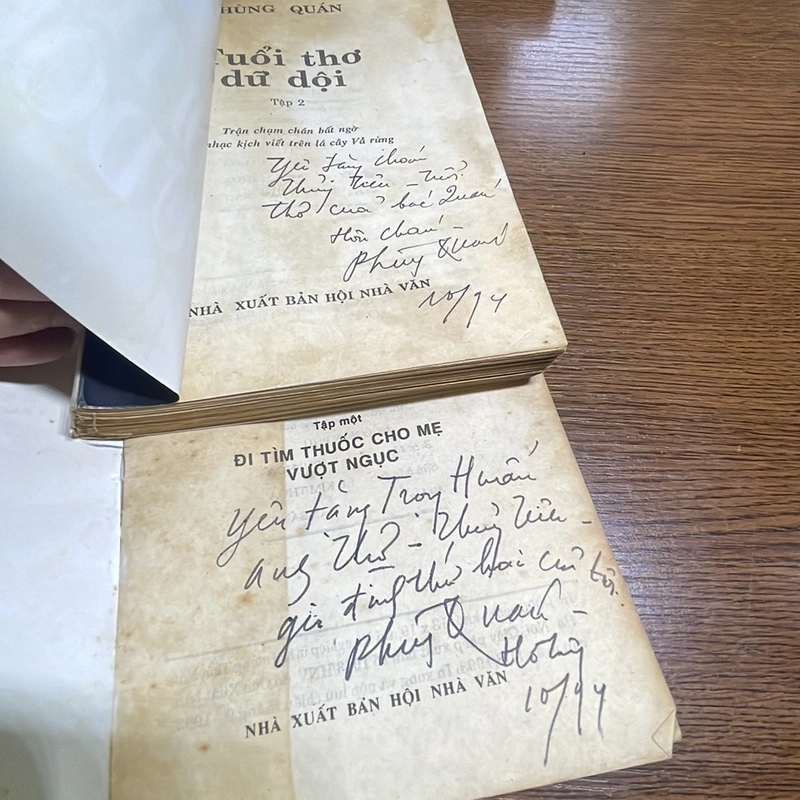 HÙNG QUÁN
Tuổi thơ
dữ dội
Tập 2
Trận chạm chán bất ngờ
nhạc kịch viết trên lá cây Vả rừng
Yêu tặng cháu
Thủy Tiên –
thơ của bác Quán
Hôn cháu –
Phùng Quán
10/94
NHÀ XUẤT BẢN HỘI NHÀ VĂN
Tập một
ĐI TÌM THUỐC CHO MẸ
VƯỢT NGỤC
Yêu tặng Trọng Huấn
Thơ – Thủy Tiên –
gia đình thứ hai của tôi
Phùng Quán –
10/94
NHÀ XUẤT BẢN HỘI NHÀ VĂN